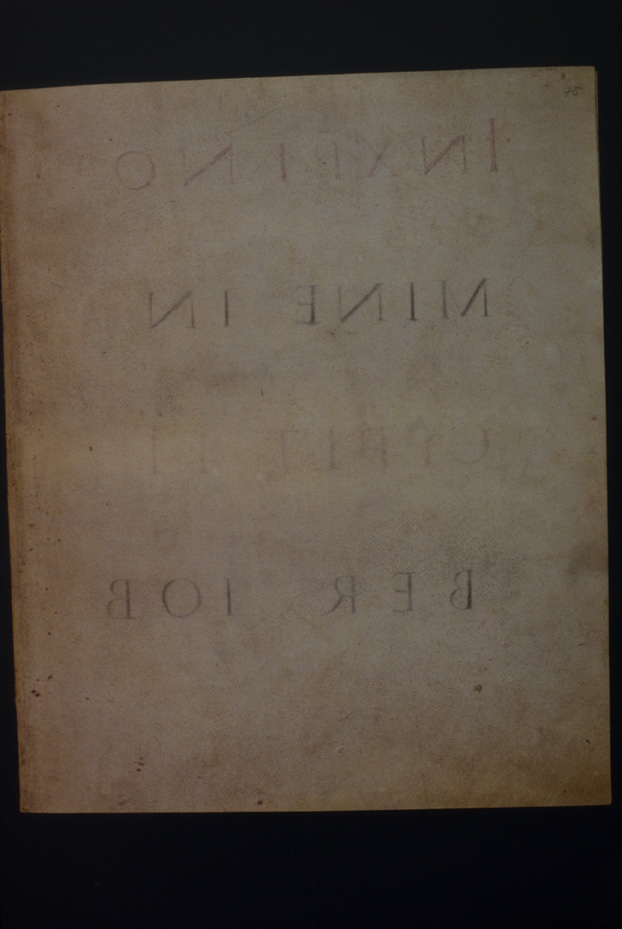 75
IN XPI NO
MINE IN
CIPIT LI
BER IOB